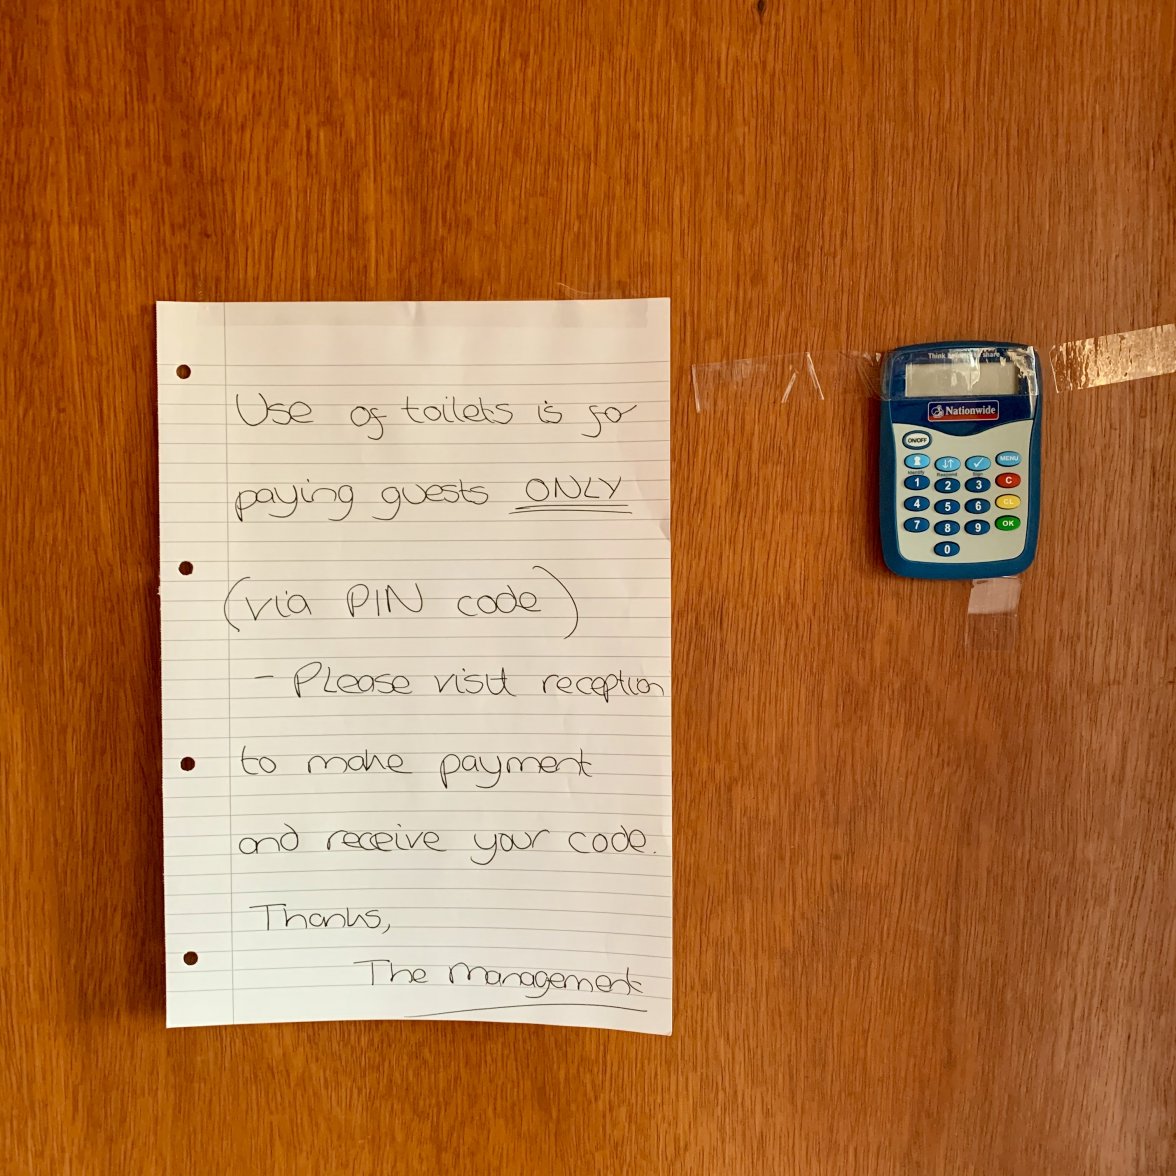 Use of toilets is for
paying guests ONLY
(via PIN code)
- Please visit reception
to make payment
and receive your code.
Thanks,
The Management
Nationwide
ON/OFF
MENU
Identify Respond Sign
1 2 3 C
4 5 6 CL
7 8 9 OK
0